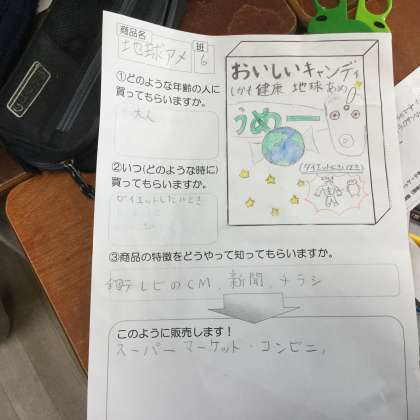 商品名
地球アメ
班
6
①どのような年齢の人に
買ってもらいますか。
大人
②いつ(どのような時に)
買ってもらいますか。
ダイエットしたいとき
おいしいキャンディ
しかも健康 地球あめ
うめー
ダイエットにさいてき
③商品の特徴をどうやって知ってもらいますか。
テレビのCM、新聞、チラシ
このように販売します!
スーパーマーケット・コンビニ、